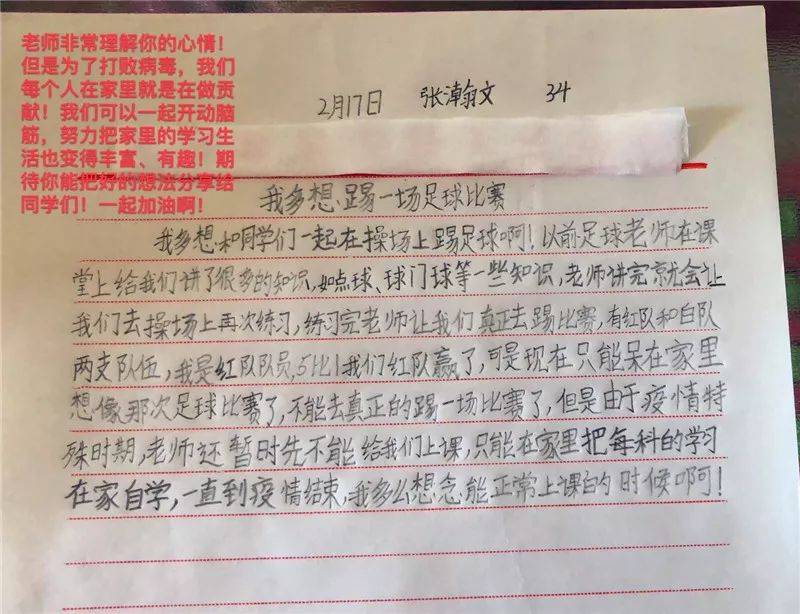 老师非常理解你的心情！
但是为了打败病毒，我们
每个人在家里就是在做贡
献！我们可以一起开动脑
筋，努力把家里的学习生
活也变得丰富、有趣！期
待你能把好的想法分享给
同学们！一起加油啊！
2月17日 张瀚文 34
我多想踢一场足球比赛
我多想和同学们一起在操场上踢足球啊！以前足球老师在课
堂上给我们讲了很多的知识，如点球、球门球等一些知识，老师讲完就会让
我们去操场上再次练习，练习完老师让我们真正去踢比赛，有红队和白队
两支队伍，我是红队队员，5比1我们红队赢了，可是现在只能呆在家里
想像那次足球比赛了，不能去真正的踢一场比赛了，但是由于疫情特
殊时期，老师还暂时先不能给我们上课，只能在家里把每科的学习
在家自学，一直到疫情结束，我多么想念能正常上课的时候啊！